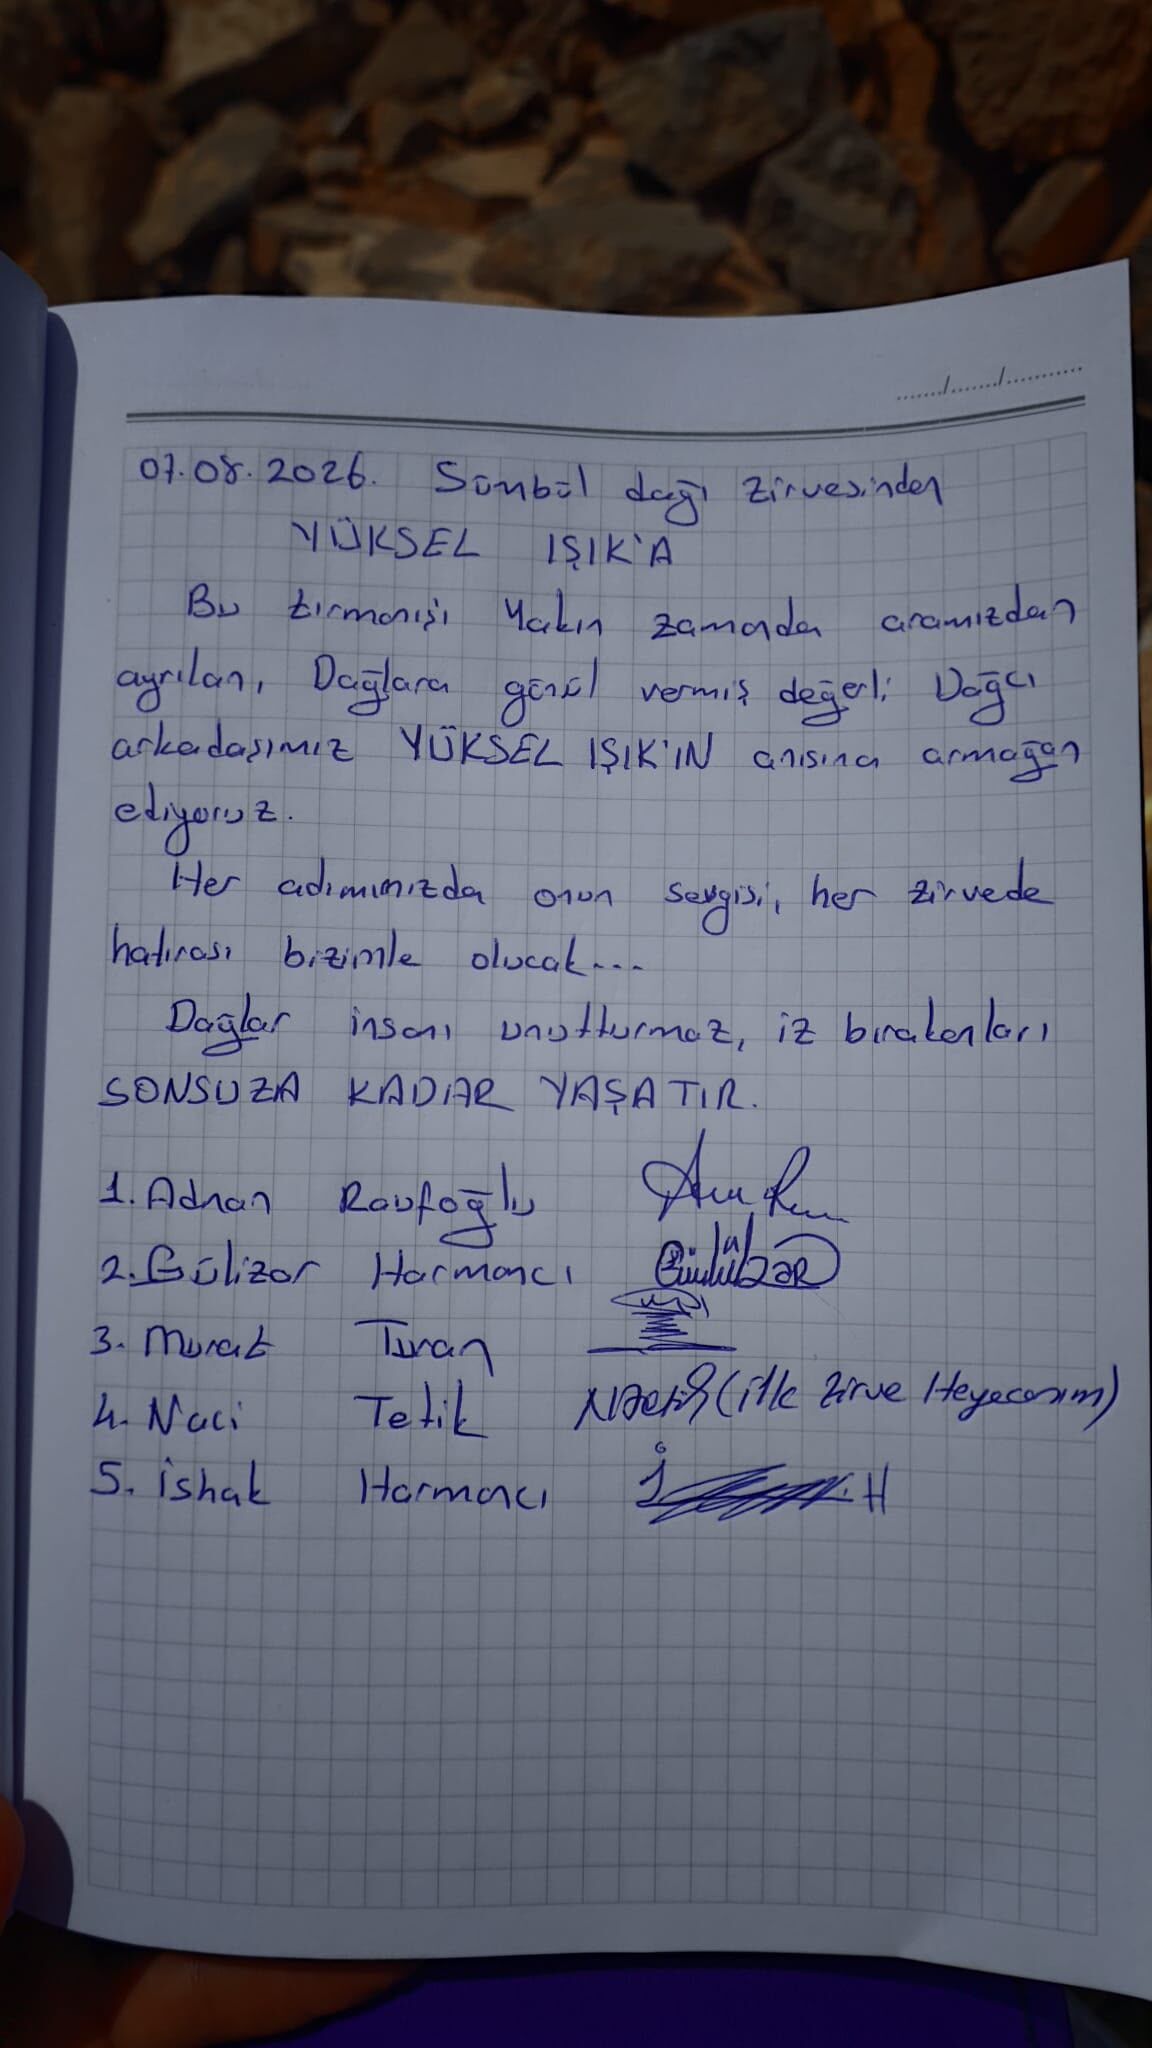 ....../....../...........
07.08.2026. Sümbül dağı zirvesinden
YÜKSEL IŞIK'A
Bu tırmanışı Yakın zamanda aramızdan
ayrılan, Dağlara gönül vermiş değerli Dağcı
arkadaşımız YÜKSEL IŞIK'IN anısına armağan
ediyoruz.
Her adımımızda onun sevgisi, her zirvede
hatırası bizimle olucak...
Dağlar insanı unutturmaz, iz bırakanları
SONSUZA KADAR YAŞATIR.
1. Adnan Raufoğlu
2. Gülizar Harmancı
3. Murat Turan
4. Naci Tetik (ilk zirve Heyecanım)
5. İshak Harmancı İ H